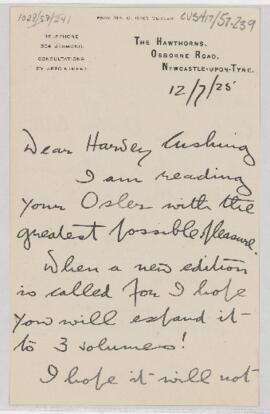 1028/59/241
CUSH17/57-239
TELEPHONE
304 JESMOND.
CONSULTATIONS
BY APPOINTMENT
THE HAWTHORNS,
OSBORNE ROAD,
NEWCASTLE-UPON-TYNE.
12/7/25
Dear Harvey Cushing
I am reading
your Osler with the
greatest possible pleasure.
When a new edition
is called for I hope
you will expand it
to 3 volumes!
I hope it will not